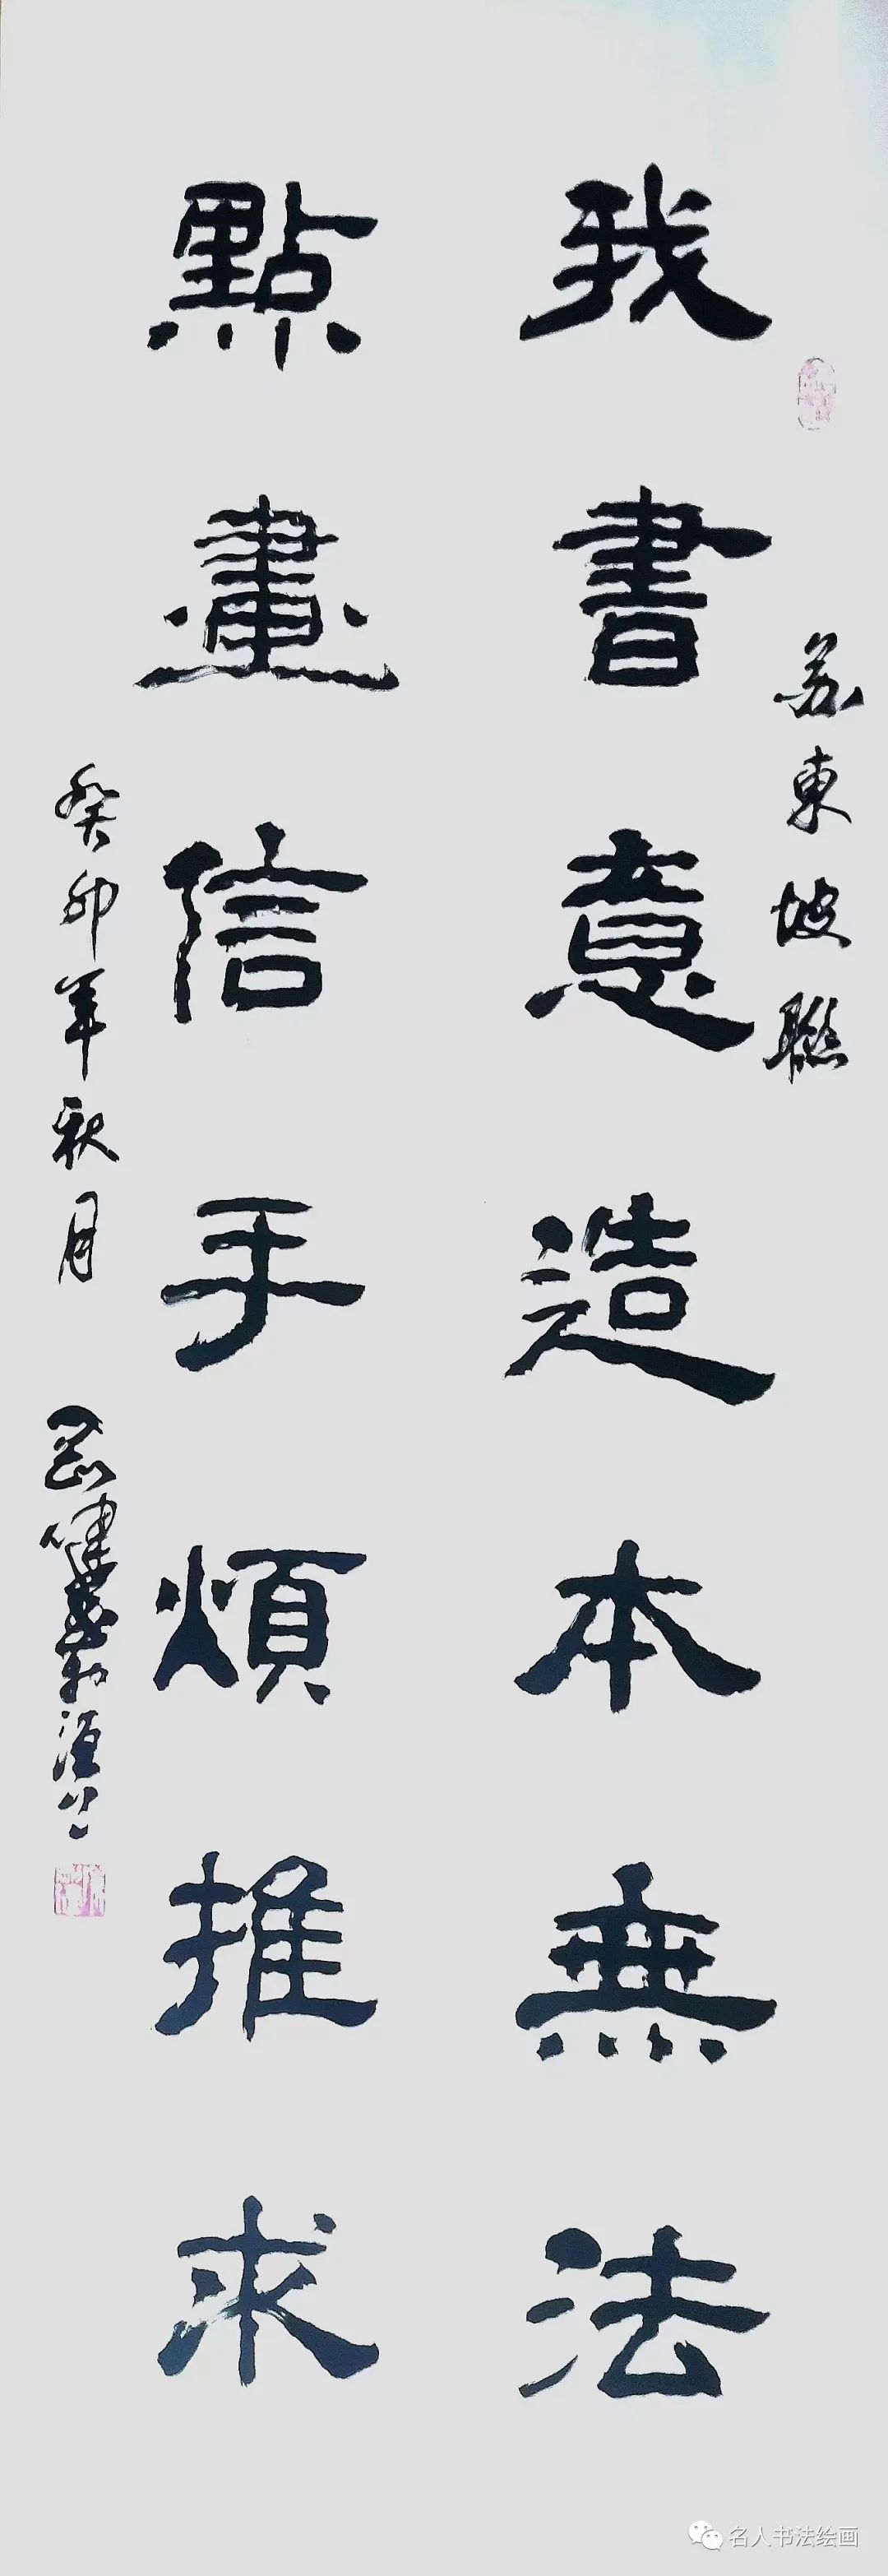 苏東坡聯
我書意造本無法
點畫信手煩推求
癸卯年秋月
名人书法绘画